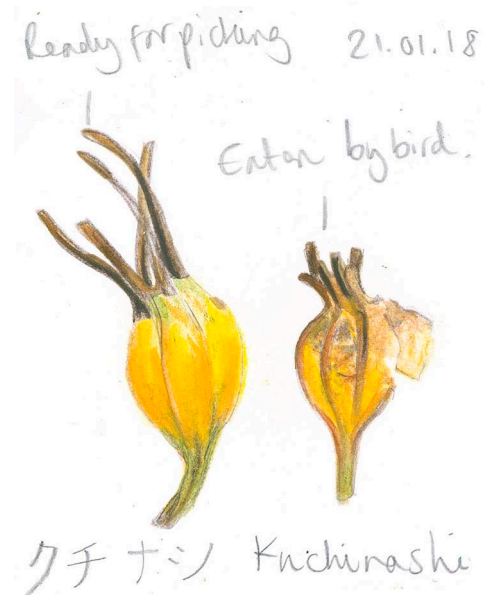 Ready for picking 21.01.18
Eaten by bird.
クチナシ Kuchinashi